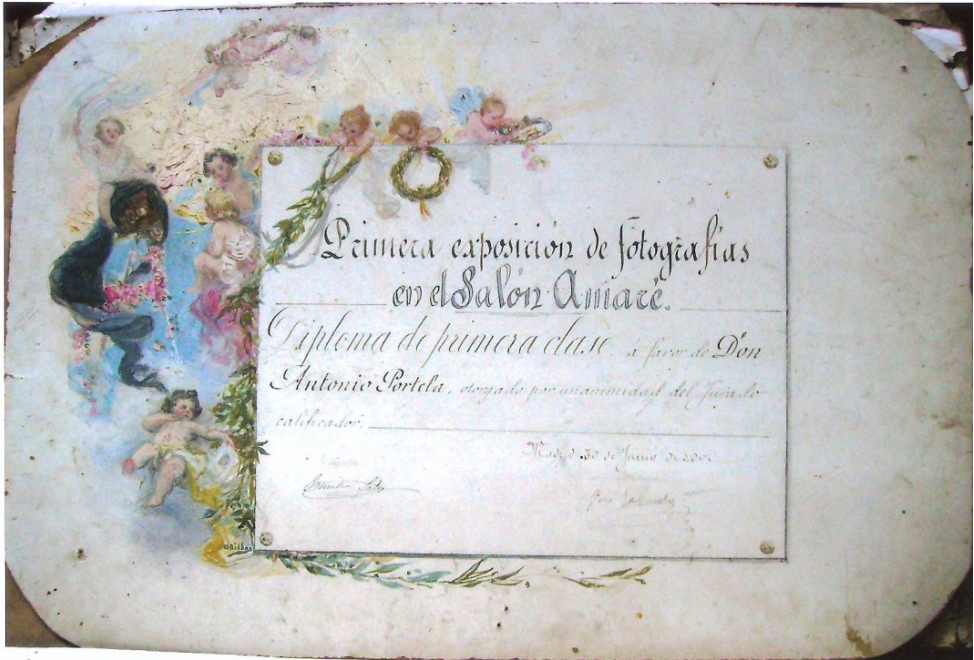 Primera exposición de fotografías
en el Salón Amaré.
Diploma de primera clase á favor de Don
Antonio Portela, otorgado por unanimidad del Jurado
calificador.
Madrid 30 de Junio de